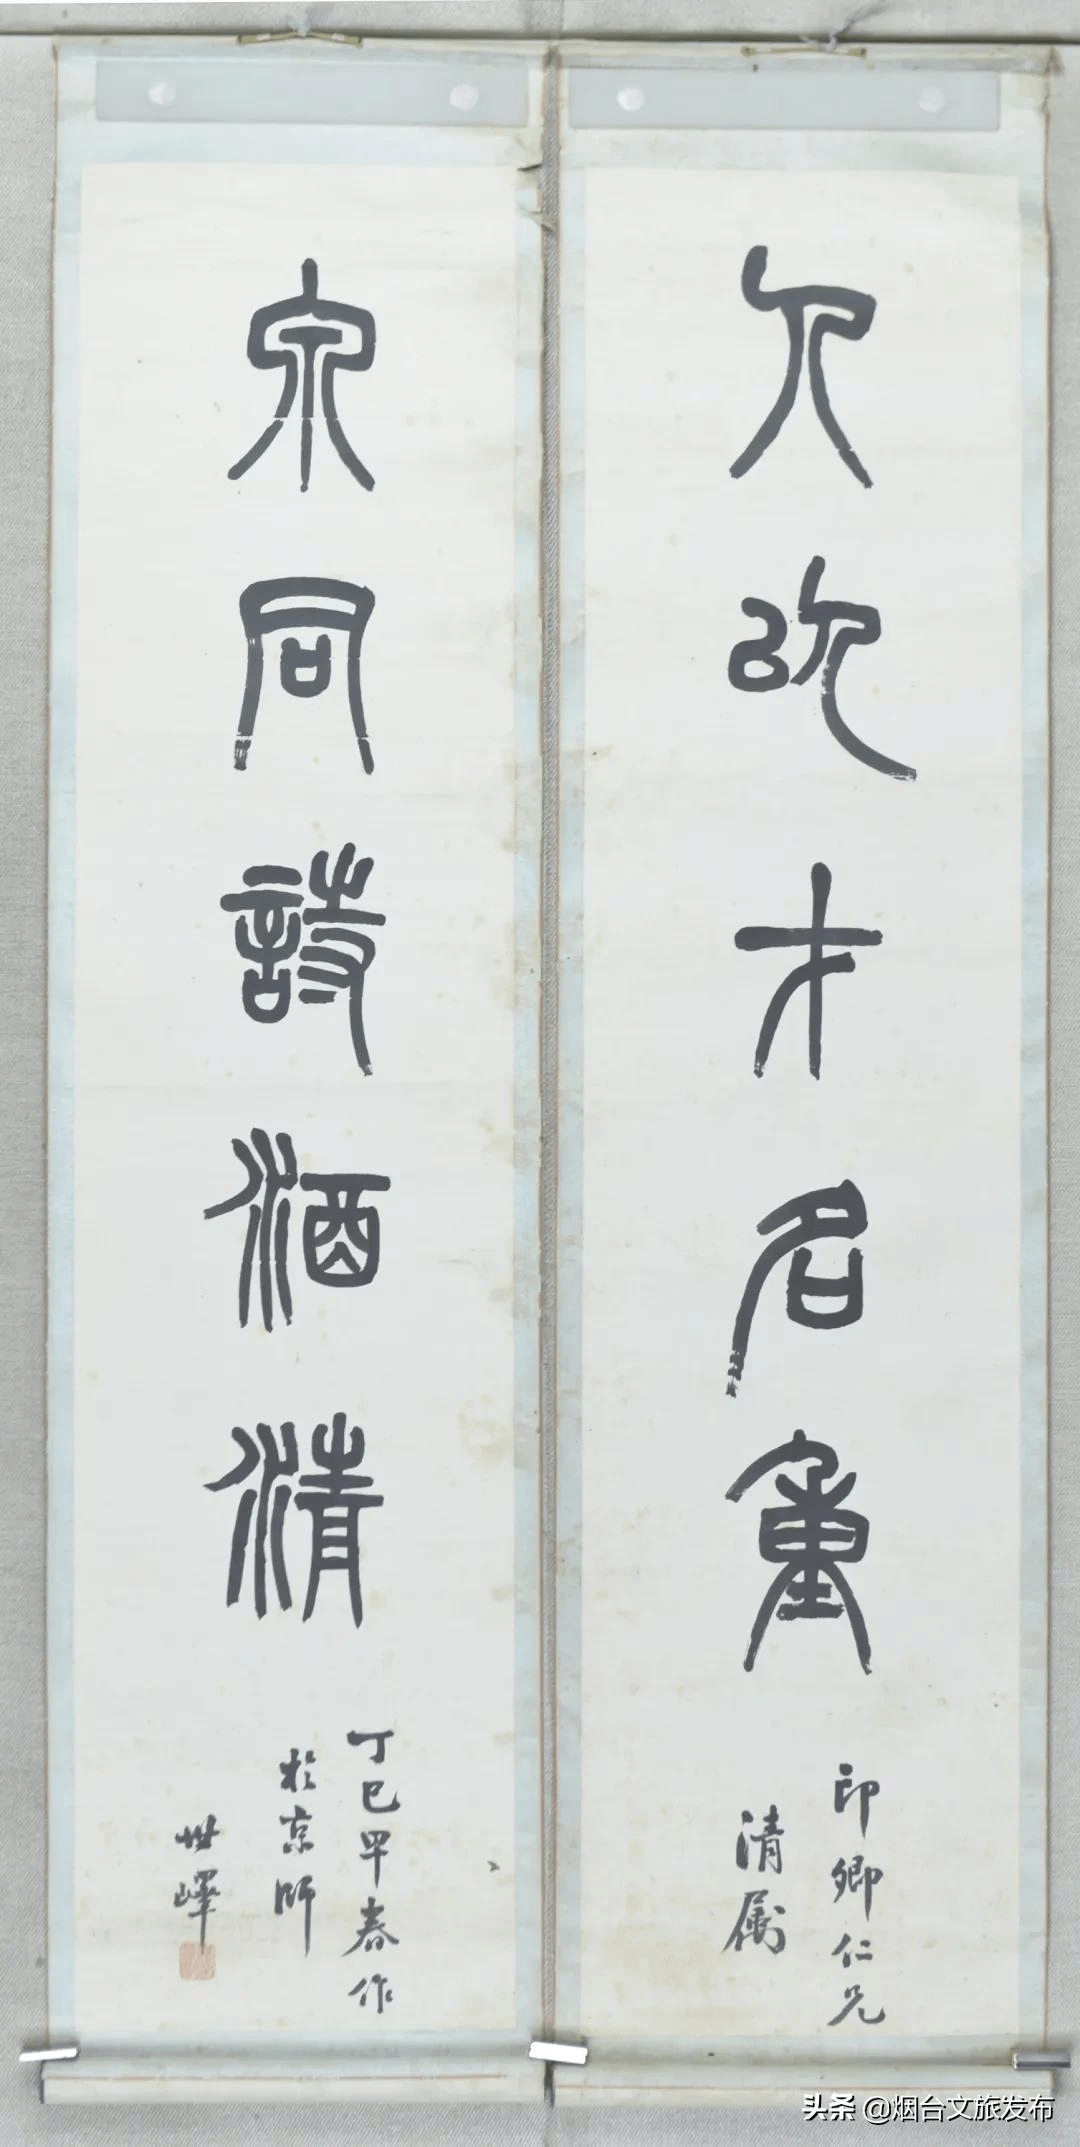 人以才名重
印卿仁兄
清属
泉同詩酒清
丁巳早春作
於京師
世嶧
头条 @烟台文旅发布